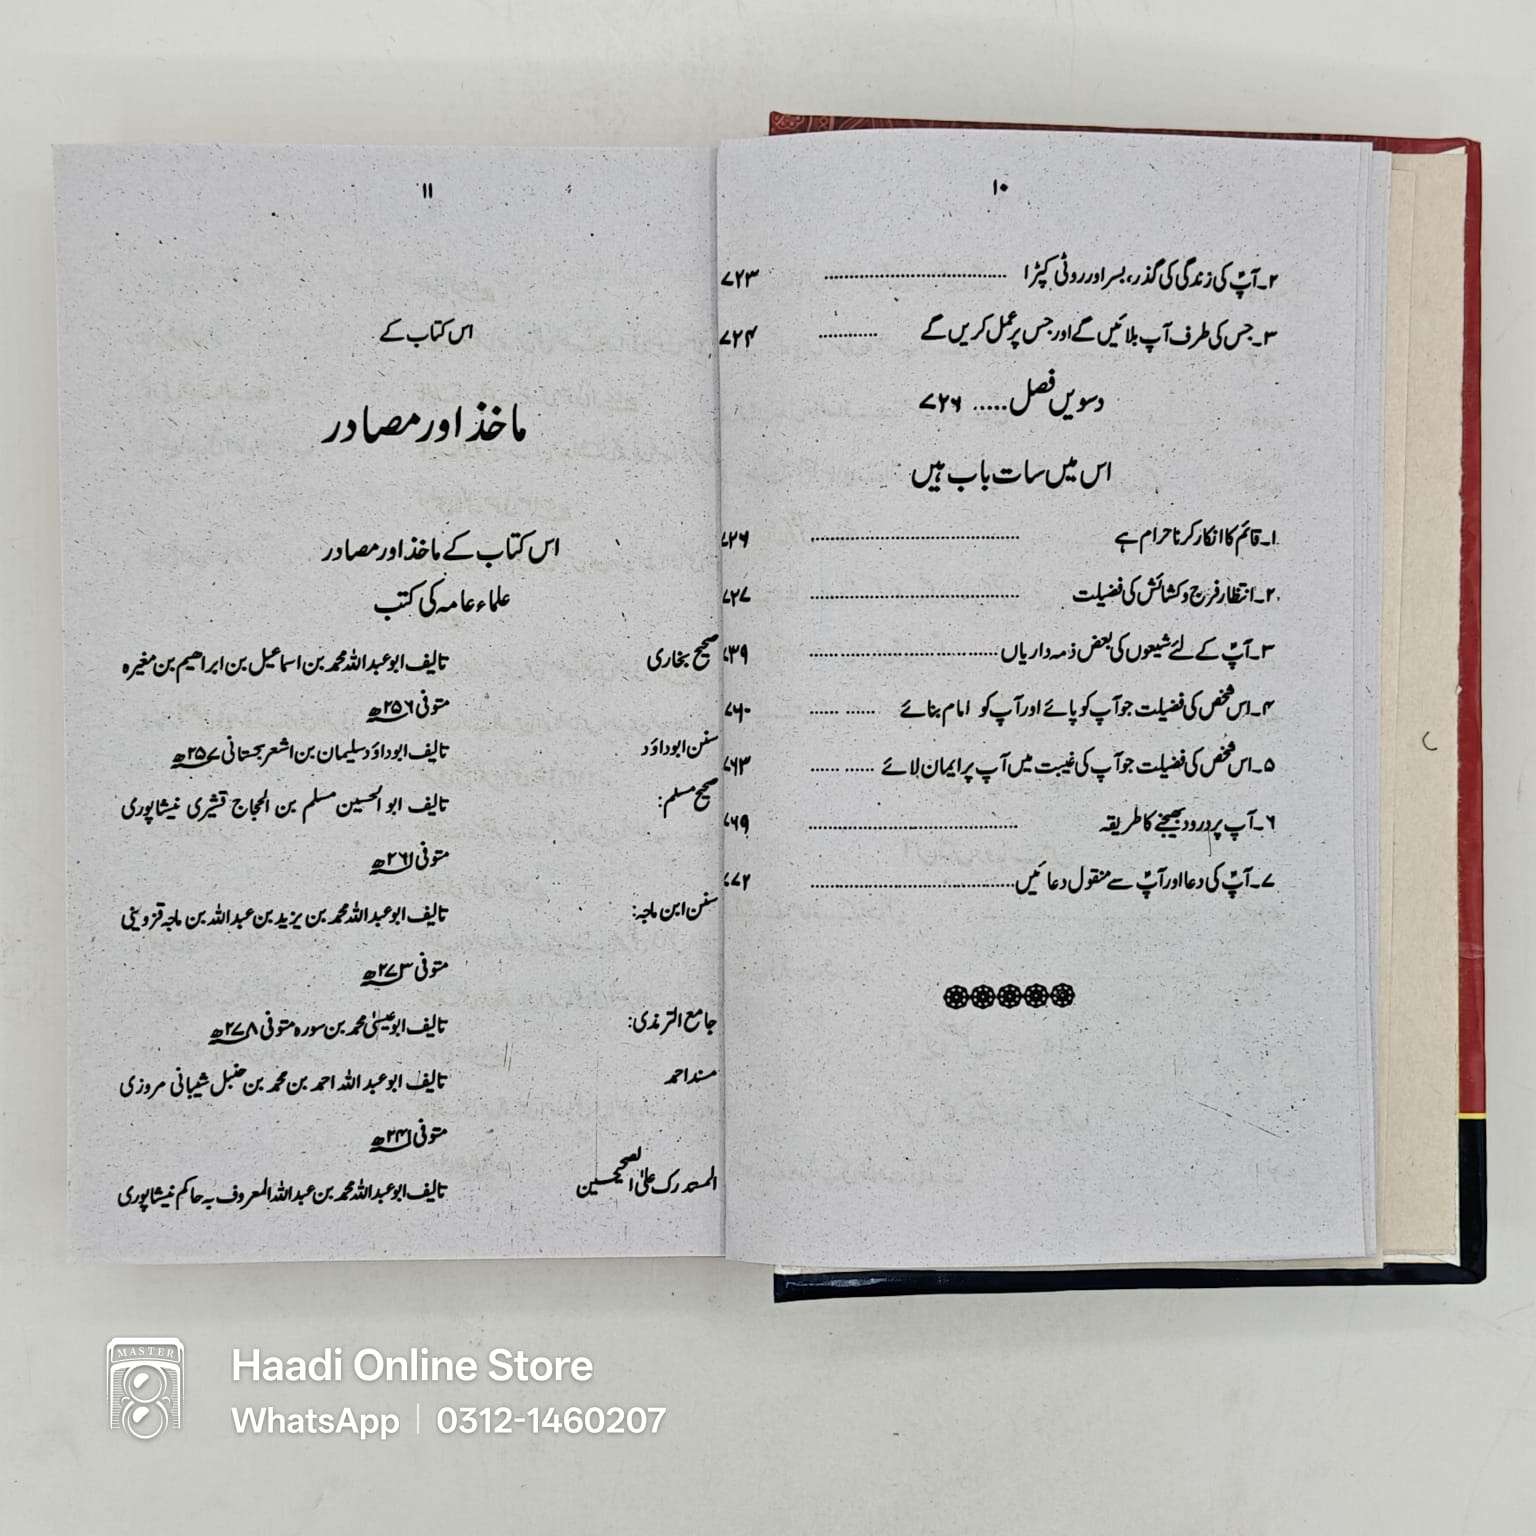 ۱۰
۲۔آپؑ کی زندگی کی گذر، بسر اور روٹی کپڑا ........................................ ۷۲۳
۳۔جس کی طرف آپ بلائیں گے اور جس پر عمل کریں گے ............ ۷۲۴
دسویں فصل ..... ۷۲۶
اس میں سات باب ہیں
۱۔قائم کا انکار کرنا حرام ہے ........................................ ۷۲۶
۲۔انتظار فرج و کشائش کی فضیلت ........................................ ۷۲۷
۳۔آپؑ کے لئے شیعوں کی بعض ذمہ داریاں ........................................ ۷۳۹
۴۔اس شخص کی فضیلت جو آپ کو پائے اور آپ کو امام بنائے ...... ...... ۷۶۰
۵۔اس شخص کی فضیلت جو آپ کی غیبت میں آپ پر ایمان لائے ...... ...... ۷۶۳
۶۔آپ پر درود بھیجنے کا طریقہ ........................................ ۷۶۹
۷۔آپؑ کی دعا اور آپؑ سے منقول دعائیں ........................................ ۷۷۲
۱۱
اس کتاب کے
ماخذ اور مصادر
اس کتاب کے ماخذ اور مصادر
علماء عامہ کی کتب
صحیح بخاری تالیف ابو عبداللہ محمد بن اسماعیل بن ابراھیم بن مغیرہ
متوفی ۲۵۶ھ
سنن ابو داؤد تالیف ابو داؤد سلیمان بن اشعر سجستانی ۲۵۷ھ
صحیح مسلم: تالیف ابو الحسین مسلم بن الحجاج قشیری نیشاپوری
متوفی ۲۶۱ھ
سنن ابن ماجہ: تالیف ابو عبداللہ محمد بن یزید بن عبداللہ بن ماجہ قزوینی
متوفی ۲۷۳ھ
جامع الترمذی: تالیف ابو عیسیٰ محمد بن سورہ متوفی ۲۷۸ھ
مسند احمد تالیف ابو عبداللہ احمد بن محمد بن حنبل شیبانی مروزی
متوفی ۲۴۱ھ
المستدرک علیٰ الصحیحین تالیف ابو عبداللہ محمد بن عبداللہ المعروف بہ حاکم نیشاپوری
MASTER
Haadi Online Store
WhatsApp | 0312-1460207